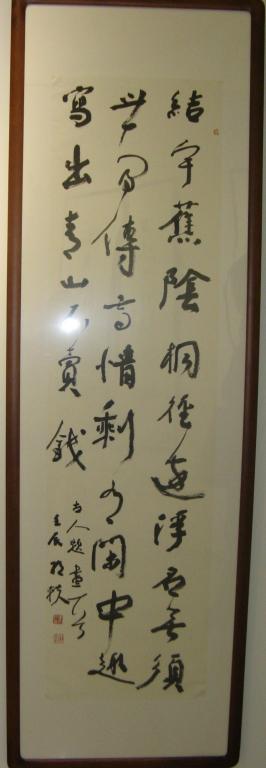 結宇蕉陰桐徑邊浮名無須
世間傳高情剩有閒中趣
寫出青山不賣錢
古人題畫一首
壬辰